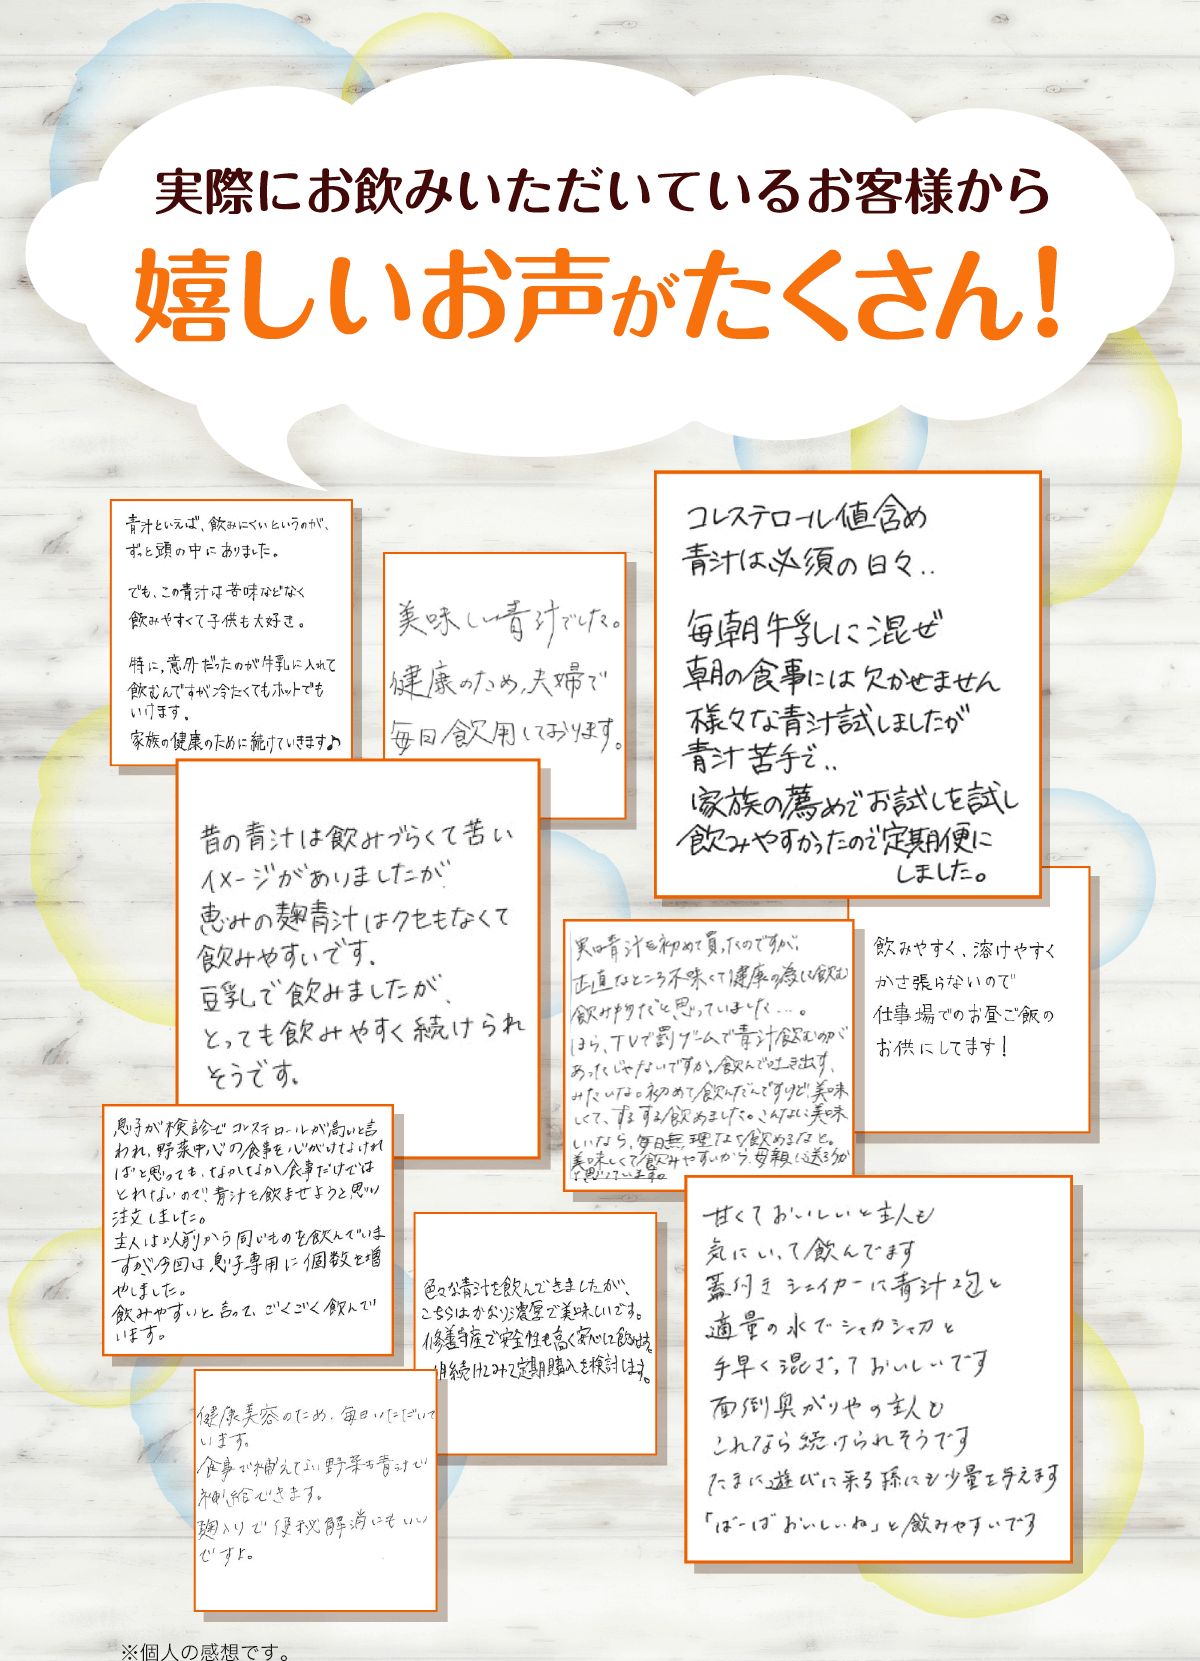 実際にお飲みいただいているお客様から
嬉しいお声がたくさん!
青汁といえば、飲みにくいというのが、
ずっと頭の中にありました。
でも、この青汁は苦味などなく
飲みやすくて子供も大好き。
特に、意外だったのが牛乳に入れて
飲むんですが冷たくてもホットでも
いけます。
家族の健康のために続けていきます♪
美味しい青汁でした。
健康のため、夫婦で
毎日飲用しております。
コレステロール値含め
青汁は必須の日々..
毎朝牛乳に混ぜ
朝の食事には欠かせません
様々な青汁試しましたが
青汁苦手で..
家族の薦めでお試しを試し
飲みやすかったので定期便に
しました。
昔の青汁は飲みづらくて苦い
イメージがありましたが
恵みの麹青汁はクセもなくて
飲みやすいです。
豆乳で飲みましたが、
とっても飲みやすく続けられ
そうです。
実は青汁を初めて買ったのですが、
正直なところ不味くて健康の為に飲む
飲み物だと思っていました…。
ほら、TVで罰ゲームで青汁飲むのが
あったじゃないですか。飲んで吐き出す、
みたいな。初めて飲んだんですけど、美味
しくて、するする飲めました。こんなに美味
しいなら、毎日無理なく飲めるなと。
美味しくて飲みやすいから、母親に送ろうか
と思っています。
飲みやすく、溶けやすく
かさ張らないので
仕事場でのお昼ご飯の
お供にしてます!
息子が検診でコレステロールが高いと言
われ、野菜中心の食事を心がけなけれ
ばと思っても、なかなか食事だけでは
とれないので、青汁を飲ませようと思い
注文しました。
主人は以前から同じものを飲んでいま
すが今回は息子専用に個数を増
やしました。
飲みやすいと言って、ごくごく飲んで
います。
色々な青汁を飲んできましたが、
こちらはかなり濃厚で美味しいです。
修善寺産で安全性も高く安心して飲めます。
月続けてみて定期購入を検討します。
健康美容のため、毎日いただいて
います。
食事で補えない野菜を青汁で
補給できます。
麹入りで便秘解消にもいい
ですよ。
甘くておいしいと主人も
気にいって飲んでます
蓋付きシェイカーに青汁2包と
適量の水でシャカシャカと
手早く混ざっておいしいです
面倒臭がりやの主人も
これなら続けられそうです
たまに遊びに来る孫にも少量を与えます
「ばーばおいしいね」と飲みやすいです
※個人の感想です。